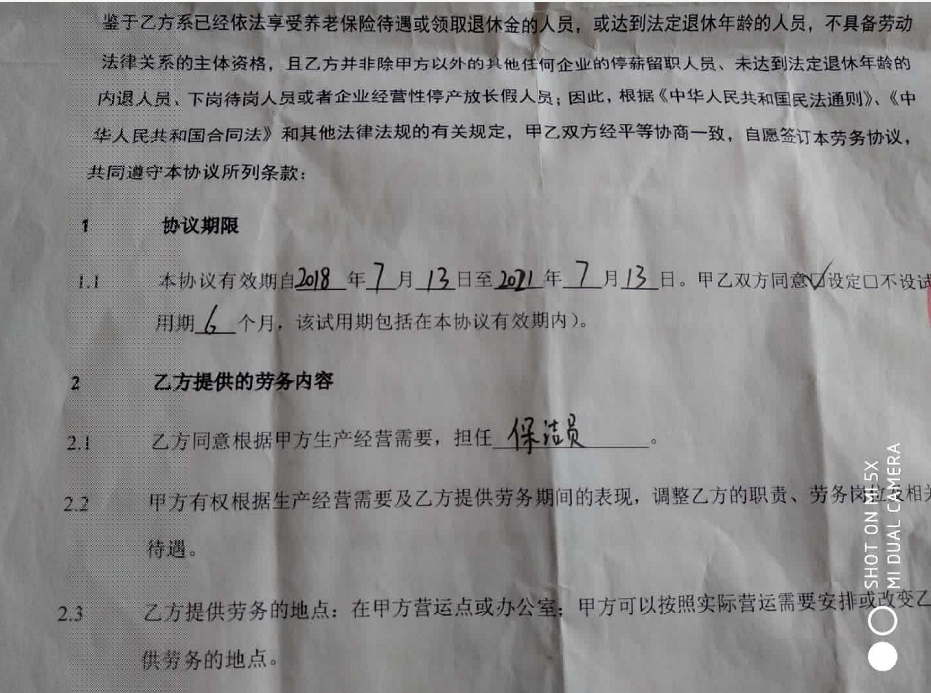 鉴于乙方系已经依法享受养老保险待遇或领取退休金的人员，或达到法定退休年龄的人员，不具备劳动
法律关系的主体资格，且乙方并非除甲方以外的其他任何企业的停薪留职人员、未达到法定退休年龄的
内退人员、下岗待岗人员或者企业经营性停产放长假人员；因此，根据《中华人民共和国民法通则》、《中
华人民共和国合同法》和其他法律法规的有关规定，甲乙双方经平等协商一致，自愿签订本劳务协议，
共同遵守本协议所列条款：
1 协议期限
1.1 本协议有效期自2018年7月13日至2021年7月13日。甲乙双方同意☑设定□不设试
用期6个月，该试用期包括在本协议有效期内）。
2 乙方提供的劳务内容
2.1 乙方同意根据甲方生产经营需要，担任保洁员。
2.2 甲方有权根据生产经营需要及乙方提供劳务期间的表现，调整乙方的职责、劳务岗位及相关
待遇。
2.3 乙方提供劳务的地点：在甲方营运点或办公室；甲方可以按照实际营运需要安排或改变乙
供劳务的地点。
SHOT ON MI 5X
MI DUAL CAMERA